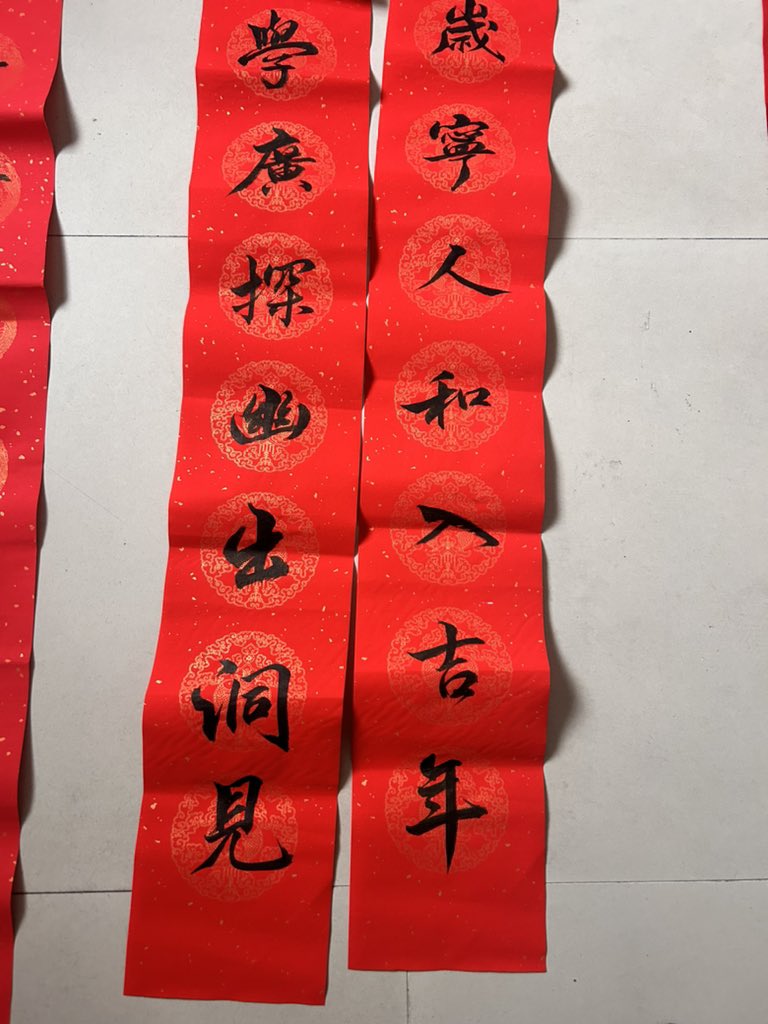 歲寧人和入吉年
學廣探幽出洞見